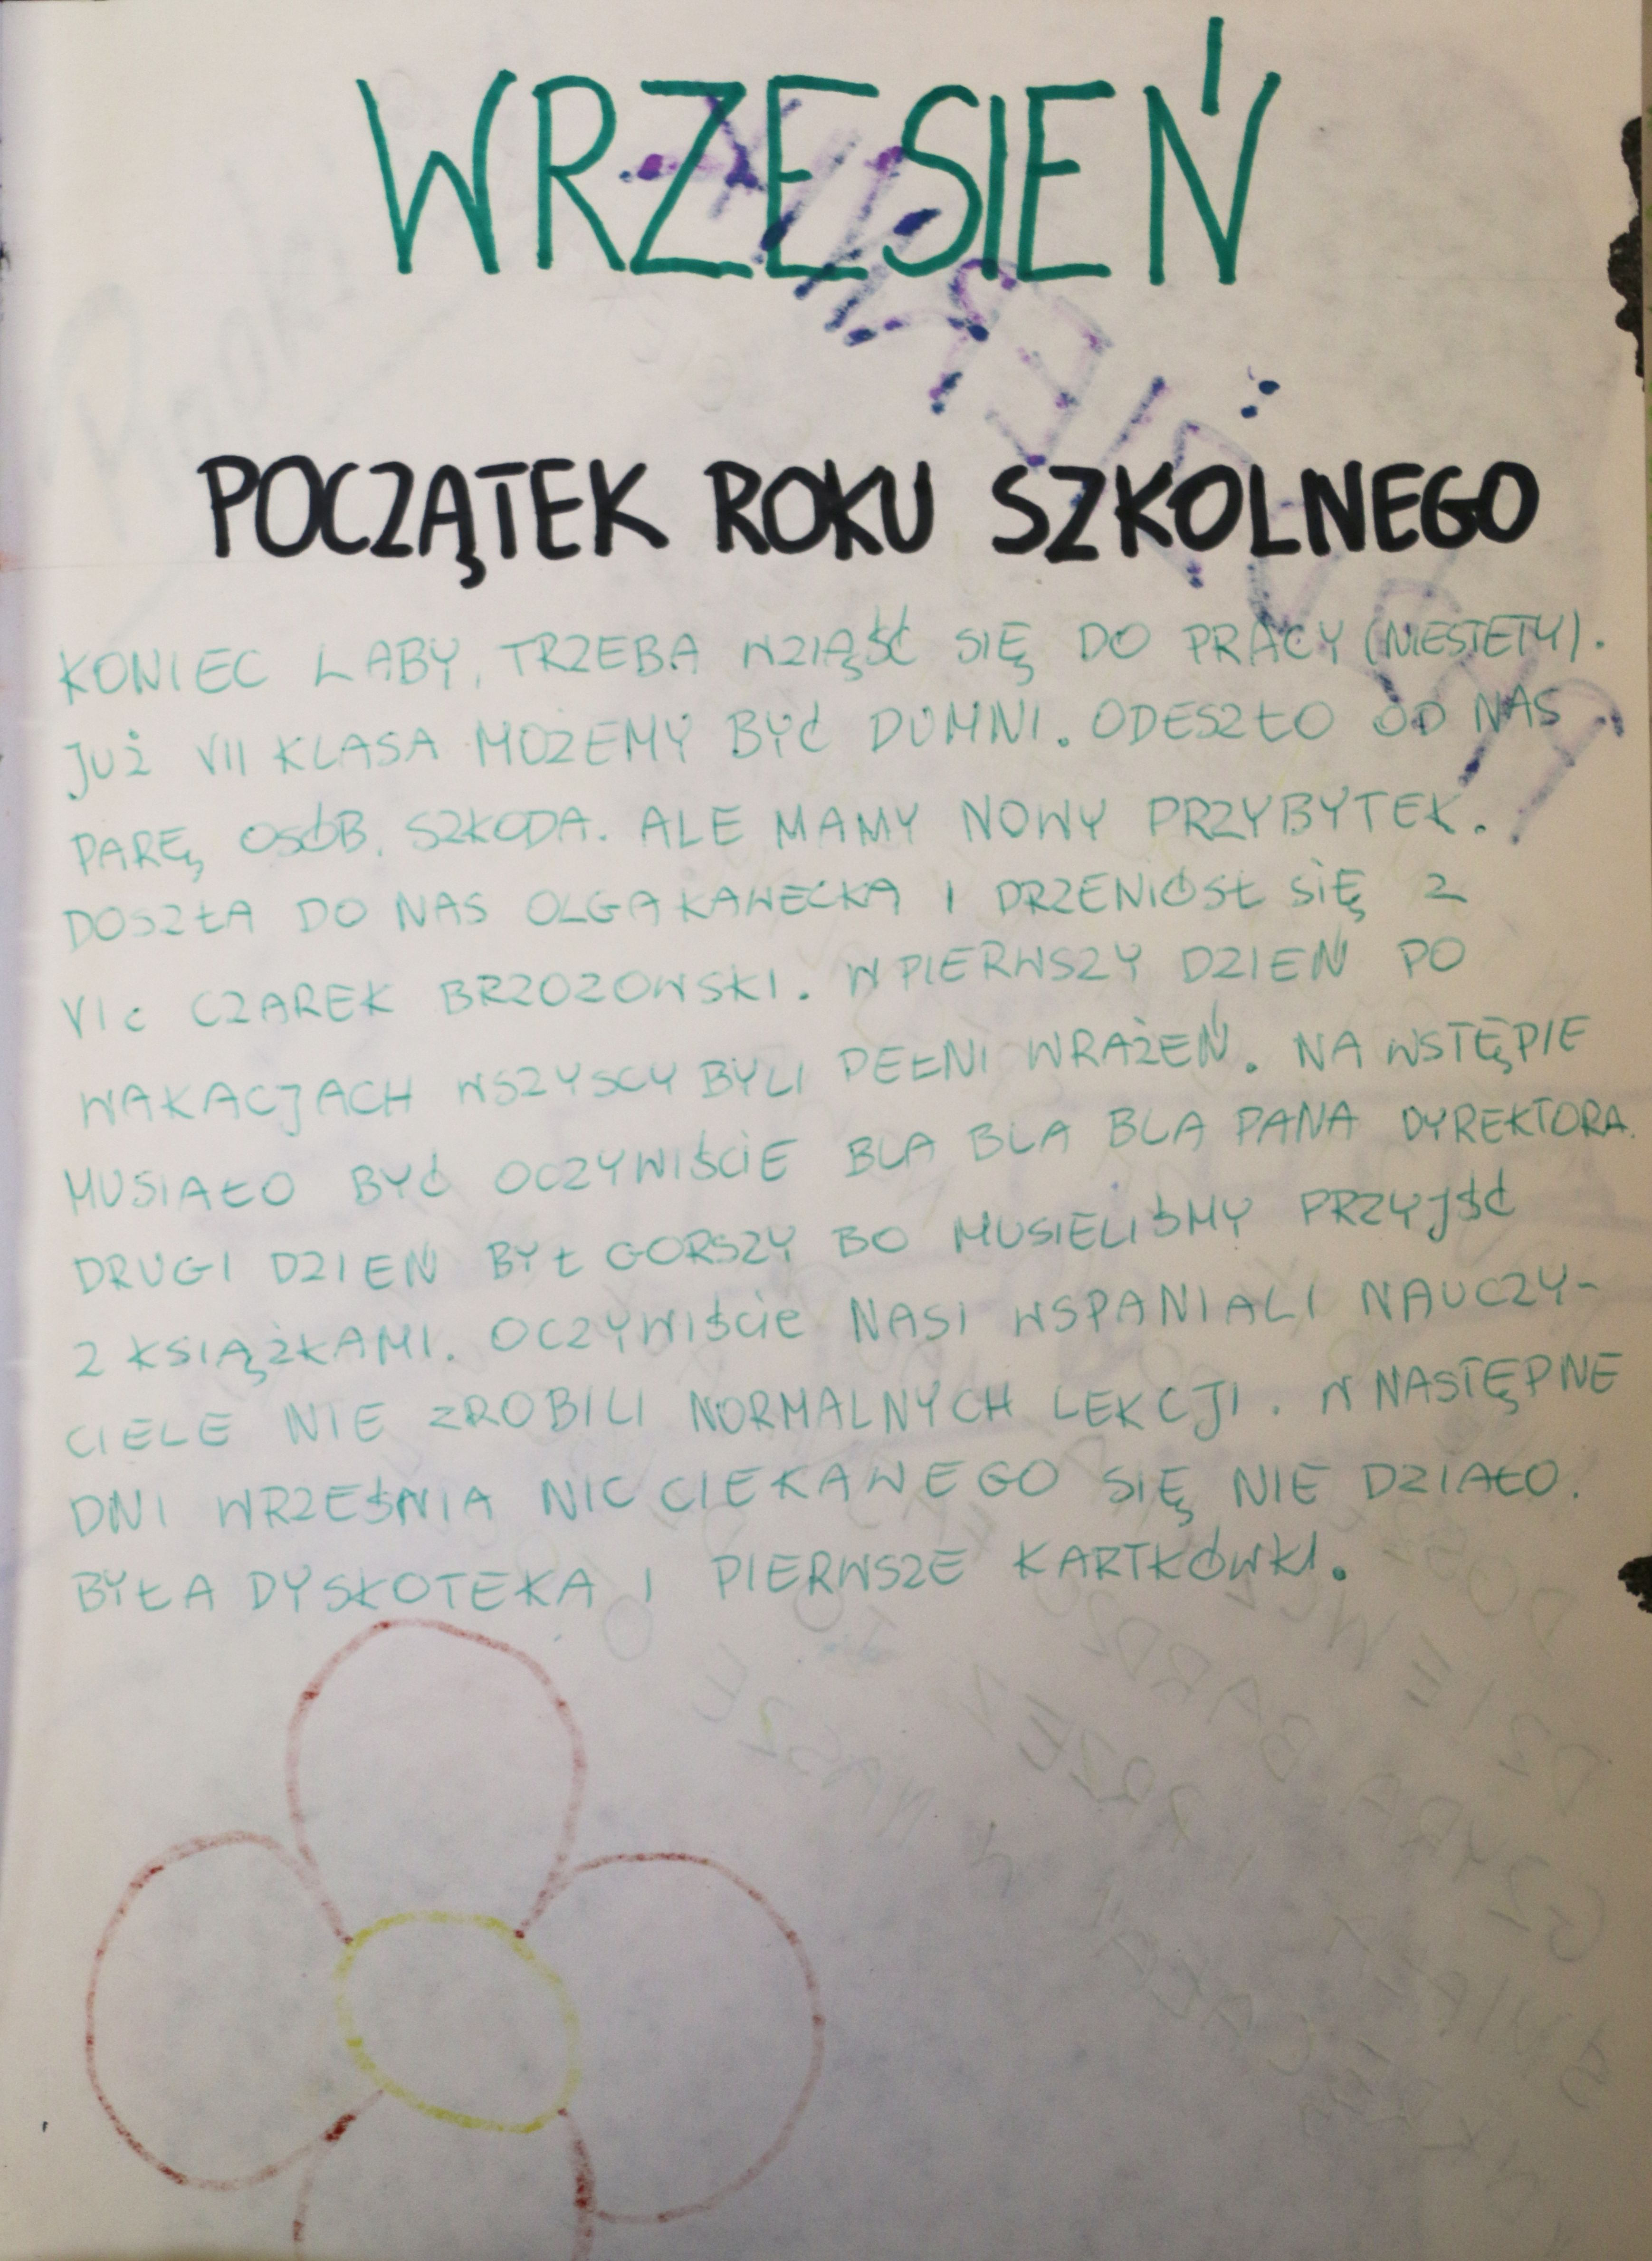 WRZESIEŃ
POCZĄTEK ROKU SZKOLNEGO
KONIEC LABY, TRZEBA WZIĄŚĆ SIĘ DO PRACY (NIESTETY).
JUŻ VII KLASA MOŻEMY BYĆ DUMNI. ODESZŁO OD NAS
PARĘ OSÓB. SZKODA. ALE MAMY NOWY PRZYBYTEK.
DOSZŁA DO NAS OLGA KAWECKA I PRZENIÓSŁ SIĘ Z
VI c CZAREK BRZOZOWSKI. W PIERWSZY DZIEŃ PO
WAKACJACH WSZYSCY BYLI PEŁNI WRAŻEŃ. NA WSTĘPIE
MUSIAŁO BYĆ OCZYWIŚCIE BLA BLA BLA PANA DYREKTORA.
DRUGI DZIEŃ BYŁ GORSZY BO MUSIELIŚMY PRZYJŚĆ
Z KSIĄŻKAMI. OCZYWIŚcie NASI WSPANIALI NAUCZY-
CIELE NIE ZROBILI NORMALNYCH LEKCJI. W NASTĘPNE
DNI WRZEŚNIA NIC CIEKAWEGO SIĘ NIE DZIAŁO.
BYŁA DYSKOTEKA I PIERWSZE KARTKÓWKI.